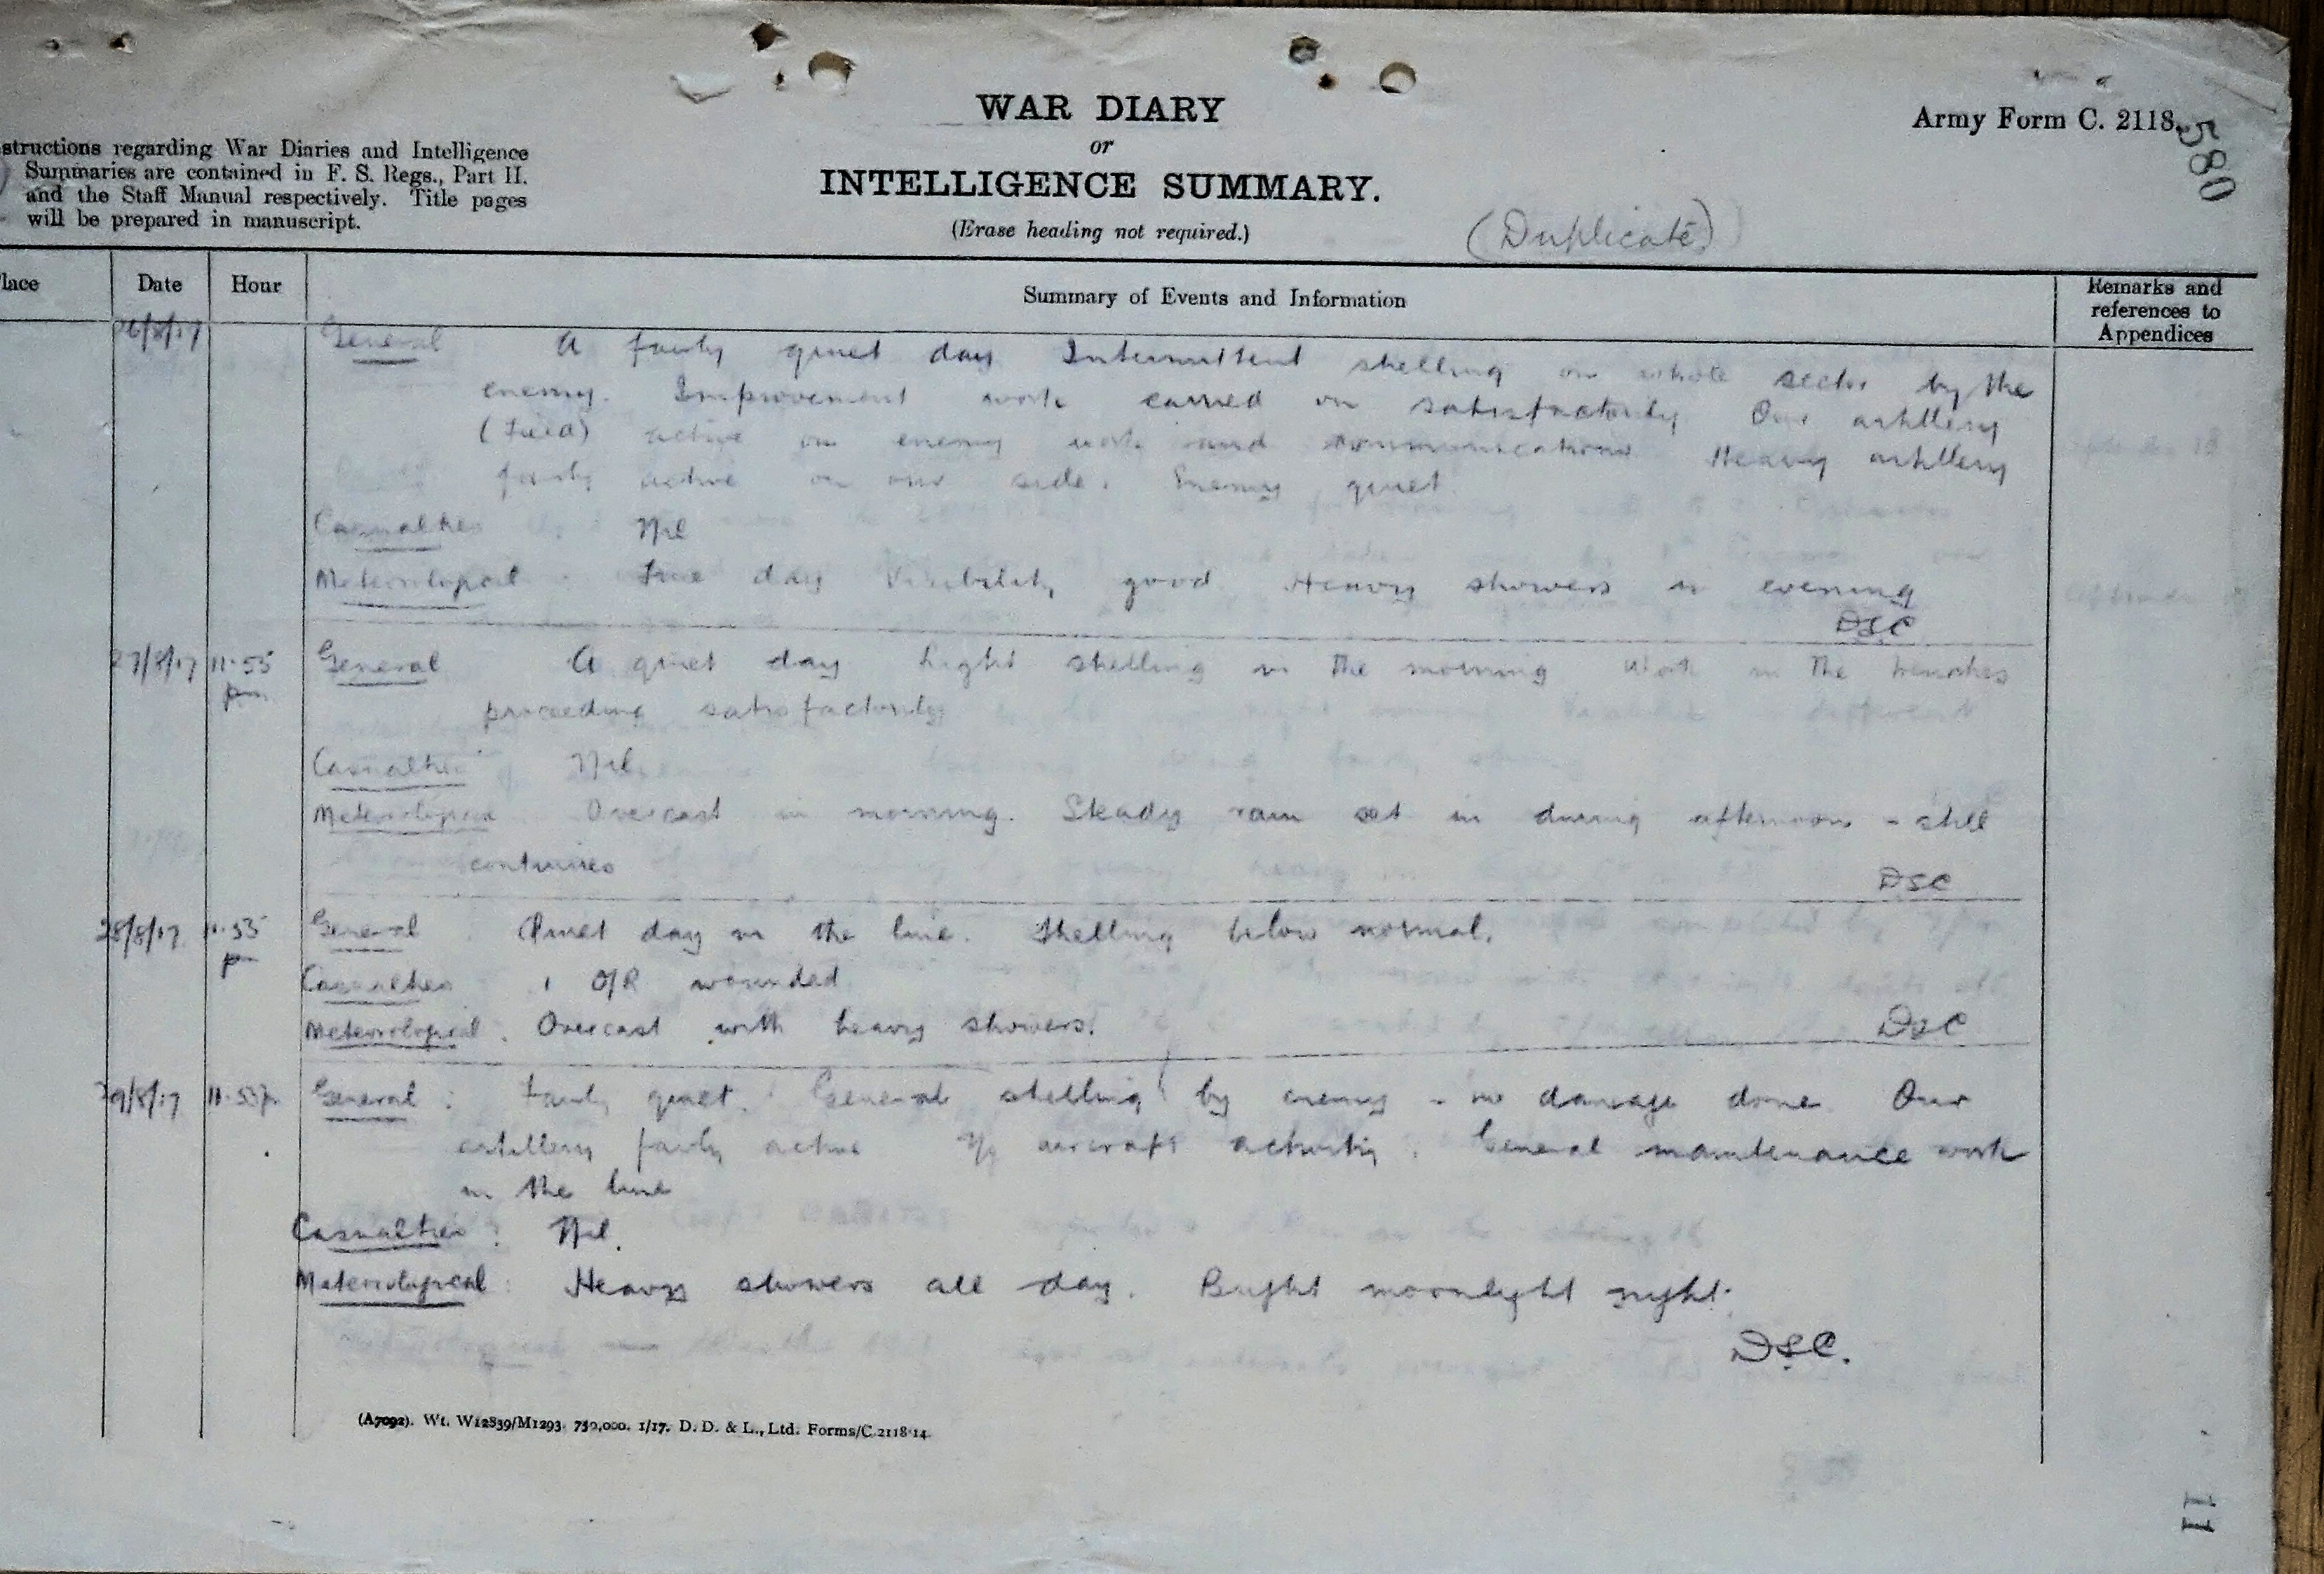 WAR DIARY
or
INTELLIGENCE SUMMARY.
(Erase heading not required.)
(Duplicate)
Army Form C. 2118.
580
structions regarding War Diaries and Intelligence
Summaries are contained in F. S. Regs., Part II.
and the Staff Manual respectively. Title pages
will be prepared in manuscript.
lace Date Hour Summary of Events and Information Remarks and references to Appendices
26/8/17 General A fairly quiet day Intermittent shelling on whole sector by the
enemy. Improvement work carried on satisfactorily Our artillery
(Field) active on enemy work and communications Heavy artillery
fairly active on our side. Enemy quiet
Casualties Nil
Meteorological Fine day Visibility good Heavy showers in evening
DSC
27/8/17 11.55 pm General A quiet day Light shelling in the morning Work in the trenches
proceeding satisfactorily
Casualties Nil
Meteorological Overcast in morning. Steady rain set in during afternoon - still
continues
DSC
28/8/17 11.55 pm General Quiet day in the line. Shelling below normal.
Casualties 1 O/R wounded
Meteorological. Overcast with heavy showers. DSC
29/8/17 General: Fairly quiet. General shelling by enemy - no damage done Our
artillery fairly active aircraft activity. General maintenance work
in the line
Casualties: Nil.
Meteorological: Heavy showers all day. Bright moonlight night.
DSC.
(A7092). Wt. W12839/M1293. 750,000. 1/17. D. D. & L., Ltd. Forms/C.2118/14.
11